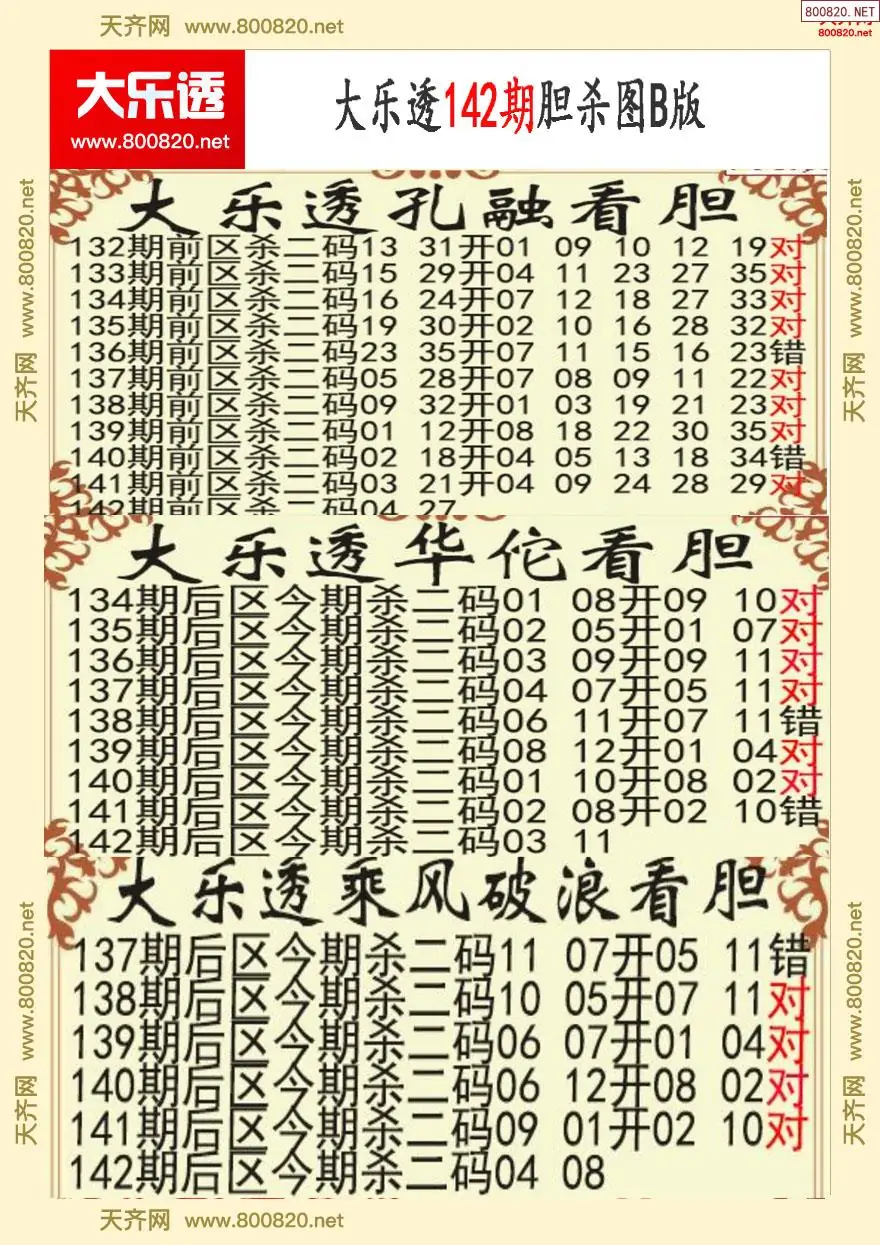 天齐网 www.800820.net
800820.NET
800820.net
大乐透
www.800820.net
大乐透142期胆杀图B版
大乐透孔融看胆
132期前区杀二码13 31开01 09 10 12 19对
133期前区杀二码15 29开04 11 23 27 35对
134期前区杀二码16 24开07 12 18 27 33对
135期前区杀二码19 30开02 10 16 28 32对
136期前区杀二码23 35开07 11 15 16 23错
137期前区杀二码05 28开07 08 09 11 22对
138期前区杀二码09 32开01 03 19 21 23对
139期前区杀二码01 12开08 18 22 30 35对
140期前区杀二码02 18开04 05 13 18 34错
141期前区杀二码03 21开04 09 24 28 29对
142期前区杀二码04 27
大乐透华佗看胆
134期后区今期杀二码01 08开09 10对
135期后区今期杀二码02 05开01 07对
136期后区今期杀二码03 09开09 11对
137期后区今期杀二码04 07开05 11对
138期后区今期杀二码06 11开07 11错
139期后区今期杀二码08 12开01 04对
140期后区今期杀二码01 10开08 02对
141期后区今期杀二码02 08开02 10错
142期后区今期杀二码03 11
大乐透乘风破浪看胆
137期后区今期杀二码11 07开05 11错
138期后区今期杀二码10 05开07 11对
139期后区今期杀二码06 07开01 04对
140期后区今期杀二码06 12开08 02对
141期后区今期杀二码09 01开02 10对
142期后区今期杀二码04 08
天齐网 www.800820.net
天齐网 www.800820.net
天齐网 www.800820.net
天齐网 www.800820.net
天齐网 www.800820.net